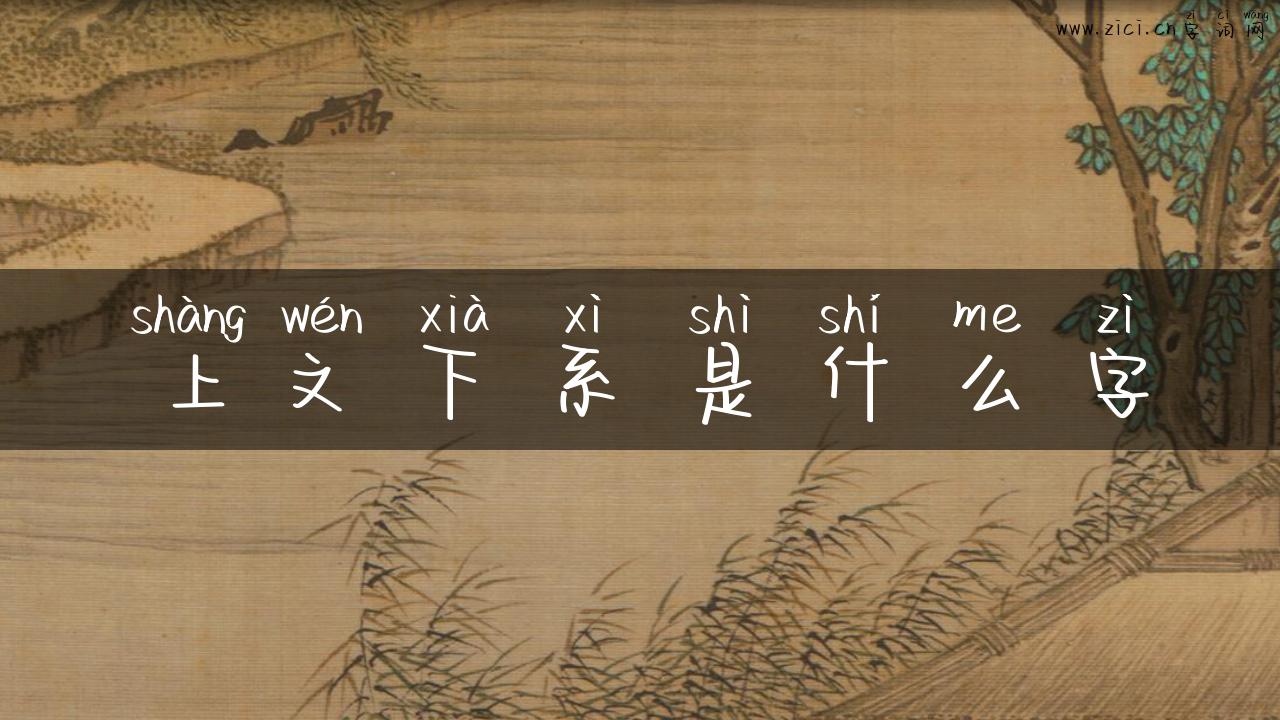 zì cí wǎng
www.zici.cn字词网
shàng wén xià xì shì shí me zì
上文下系是什么字